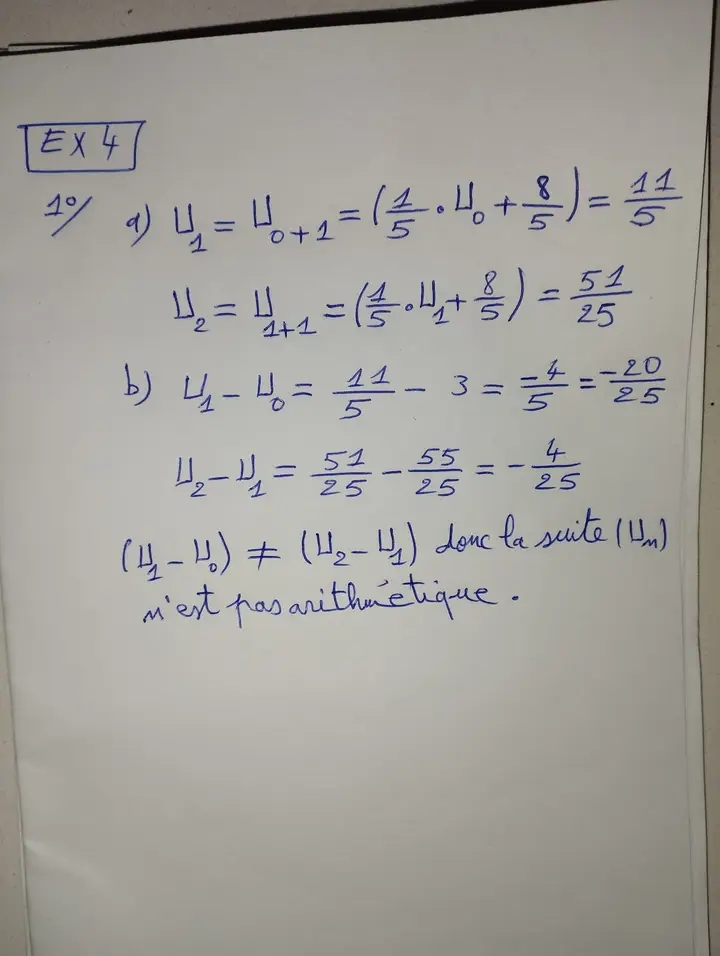 EX 4
1°/ a) U₁ = U₀₊₁ = (1/5 . U₀ + 8/5) = 11/5
U₂ = U₁₊₁ = (1/5 . U₁ + 8/5) = 51/25
b) U₁ - U₀ = 11/5 - 3 = -4/5 = -20/25
U₂ - U₁ = 51/25 - 55/25 = - 4/25
(U₁ - U₀) ≠ (U₂ - U₁) donc la suite (Un)
n'est pas arithmétique .